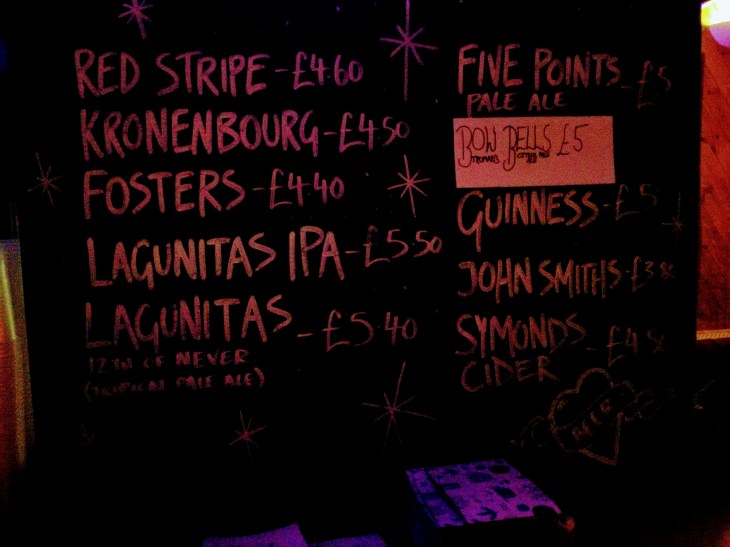 RED STRIPE - £4.60
KRONENBOURG - £4.50
FOSTERS - £4.40
LAGUNITAS IPA - £5.50
LAGUNITAS - £5.40
12TH OF NEVER
(TROPICAL PALE ALE)
FIVE POINTS - £5
PALE ALE
BOW BELLS £5
GUINNESS - £5
JOHN SMITHS - £3
SYMONDS - £4
CIDER